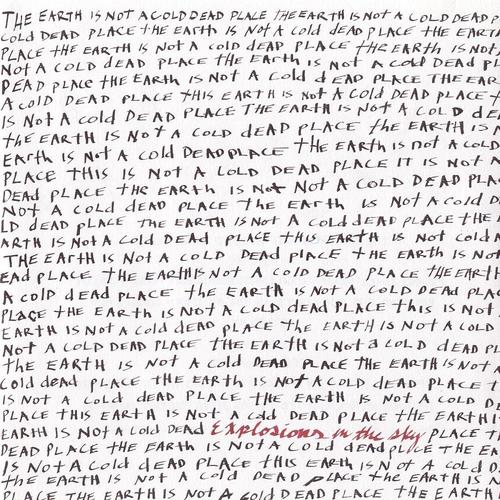 THE EARTH IS NOT A COLD DEAD PLACE THE EARTH IS NOT A COLD DEAD
COLD DEAD PLACE THE EARTH IS NOT A COLD DEAD PLACE THE EARTH
PLACE THE EARTH IS NOT A COLD DEAD PLACE THE EARTH IS NOT
NOT A COLD DEAD PLACE THE EARTH IS NOT A COLD DEAD PL
DEAD PLACE THE EARTH IS NOT A COLD DEAD PLACE THE EAR
A COLD DEAD PLACE THIS EARTH IS NOT A COLD DEAD PLACE
IS NOT A COLD DEAD PLACE THE EARTH IS NOT A COLD DE
THE EARTH IS NOT A COLD DEAD PLACE THE EARTH IS
EARTH IS NOT A COLD DEAD PLACE THE EARTH IS NOT A COLD
PLACE THIS IS NOT A COLD DEAD PLACE IT IS NOT A
DEAD PLACE THE EARTH IS NOT NOT A COLD DEAD PLA
NOT A COLD DEAD PLACE THE EARTH IS NOT A COLD D
LD DEAD PLACE THE EARTH IS NOT A COLD DEAD PLACE THE
ARTH IS NOT A COLD DEAD PLACE THIS EARTH IS NOT COLD
THE EARTH IS NOT A COLD DEAD PLACE THE EARTH IS NOT
EAD PLACE THE EARTH IS NOT A COLD DEAD PLACE THE EARTH
A COLD DEAD PLACE THE EARTH IS NOT A COLD DEAD PLA
PLACE THE EARTH IS NOT A COLD DEAD PLACE THIS IS NOT
EARTH IS NOT A COLD DEAD PLACE THE EARTH IS NOT A COLD
NOT A COLD DEAD PLACE THE EARTH IS NOT A COLD DEAD
THE EARTH IS NOT A COLD DEAD PLACE THE EARTH IS NOT A
COLD DEAD PLACE THE EARTH IS NOT A COLD DEAD PLACE
IS NOT A COLD DEAD PLACE THE EARTH IS NOT A COLD D
PLACE THIS EARTH IS NOT A COLD DEAD PLACE THE EARTH
EARTH IS NOT A COLD DEAD Explosions in the sky PLACE T
DEAD PLACE THE EARTH IS NOT A COLD DEAD PLACE THE EA
IS NOT A COLD DEAD PLACE THIS EARTH IS NOT A COLD
THE EARTH IS NOT A COLD DEAD PLACE THE EARTH IS NOT
PLACE THE EARTH IS NOT A COLD DEAD PLACE THE EARTH